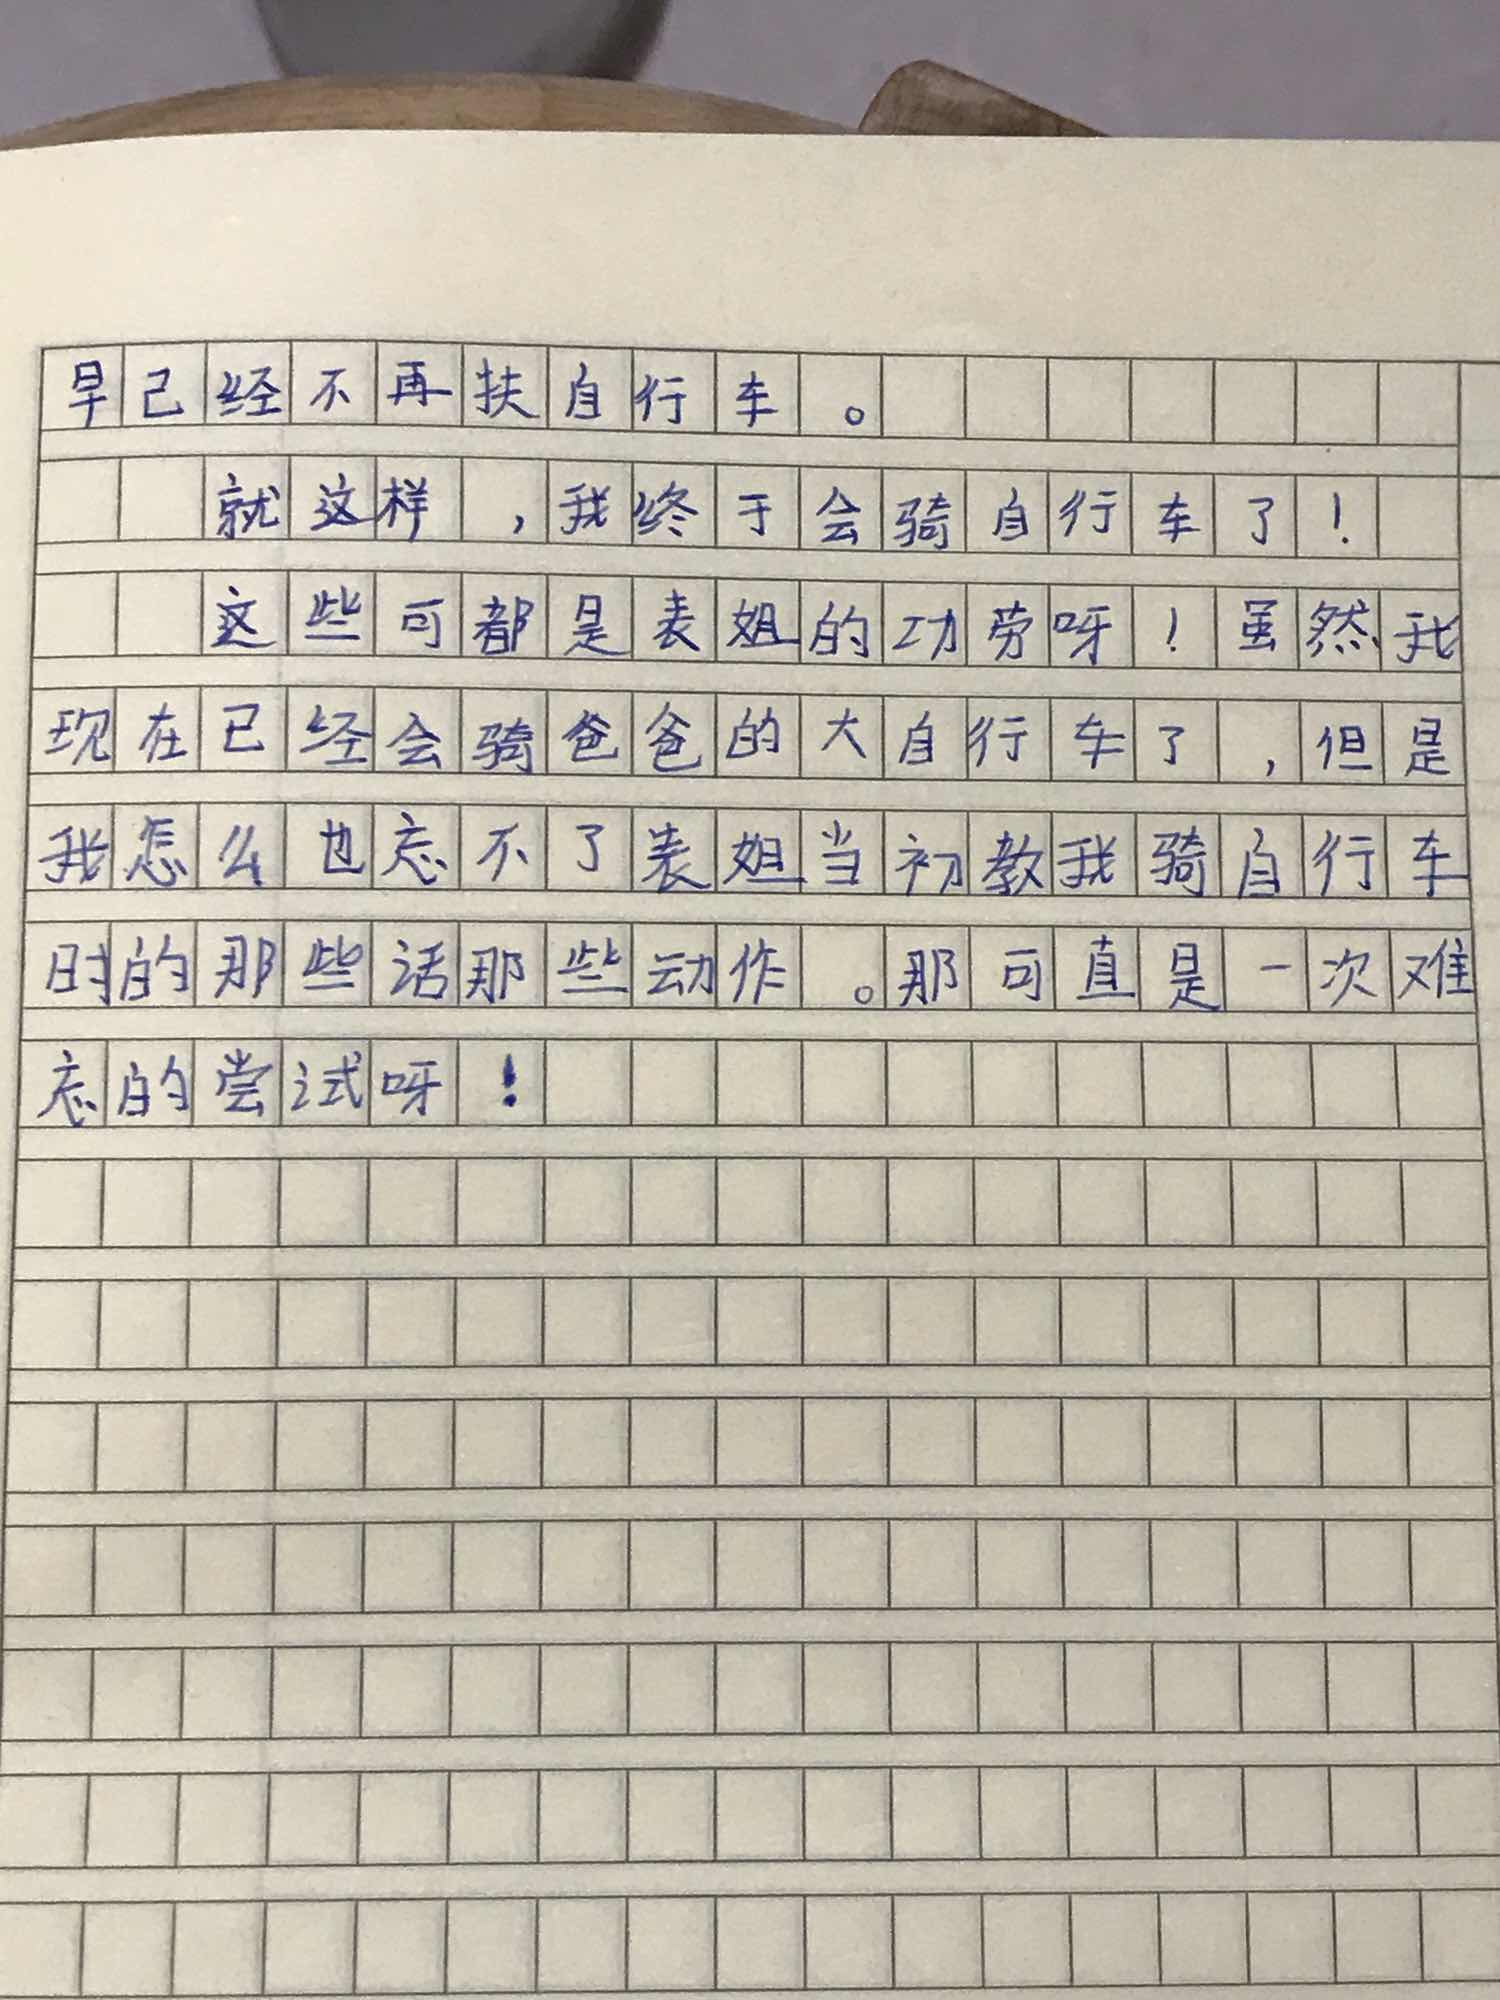 早已经不再扶自行车。
就这样，我终于会骑自行车了！
这些可都是表姐的功劳呀！虽然我
现在已经会骑爸爸的大自行车了，但是
我怎么也忘不了表姐当初教我骑自行车
时的那些话那些动作。那可真是一次难
忘的尝试呀！